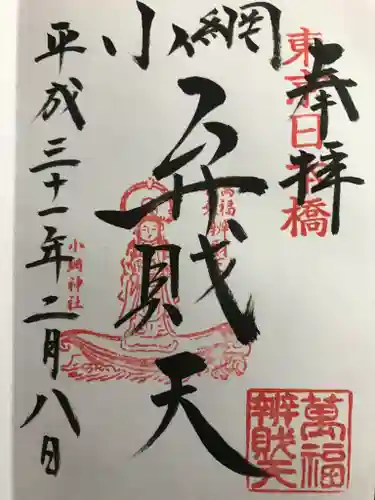 奉拝
東京日本橋
小網
弁財天
萬福
辨財天
小網神社
平成三十一年二月八日